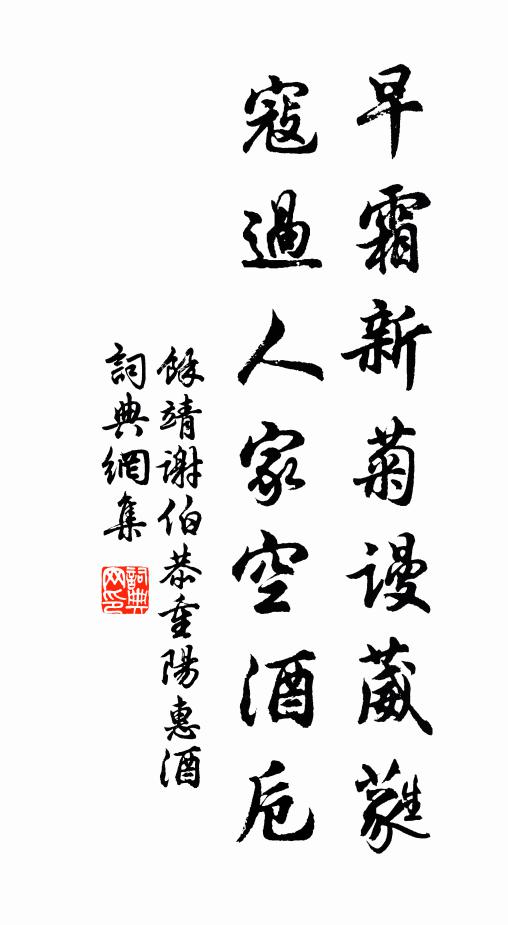 早霜新菊謾葳蕤
寇過人家空酒卮
餘靖謝伯恭重陽惠酒
詞典網集
詞典網印